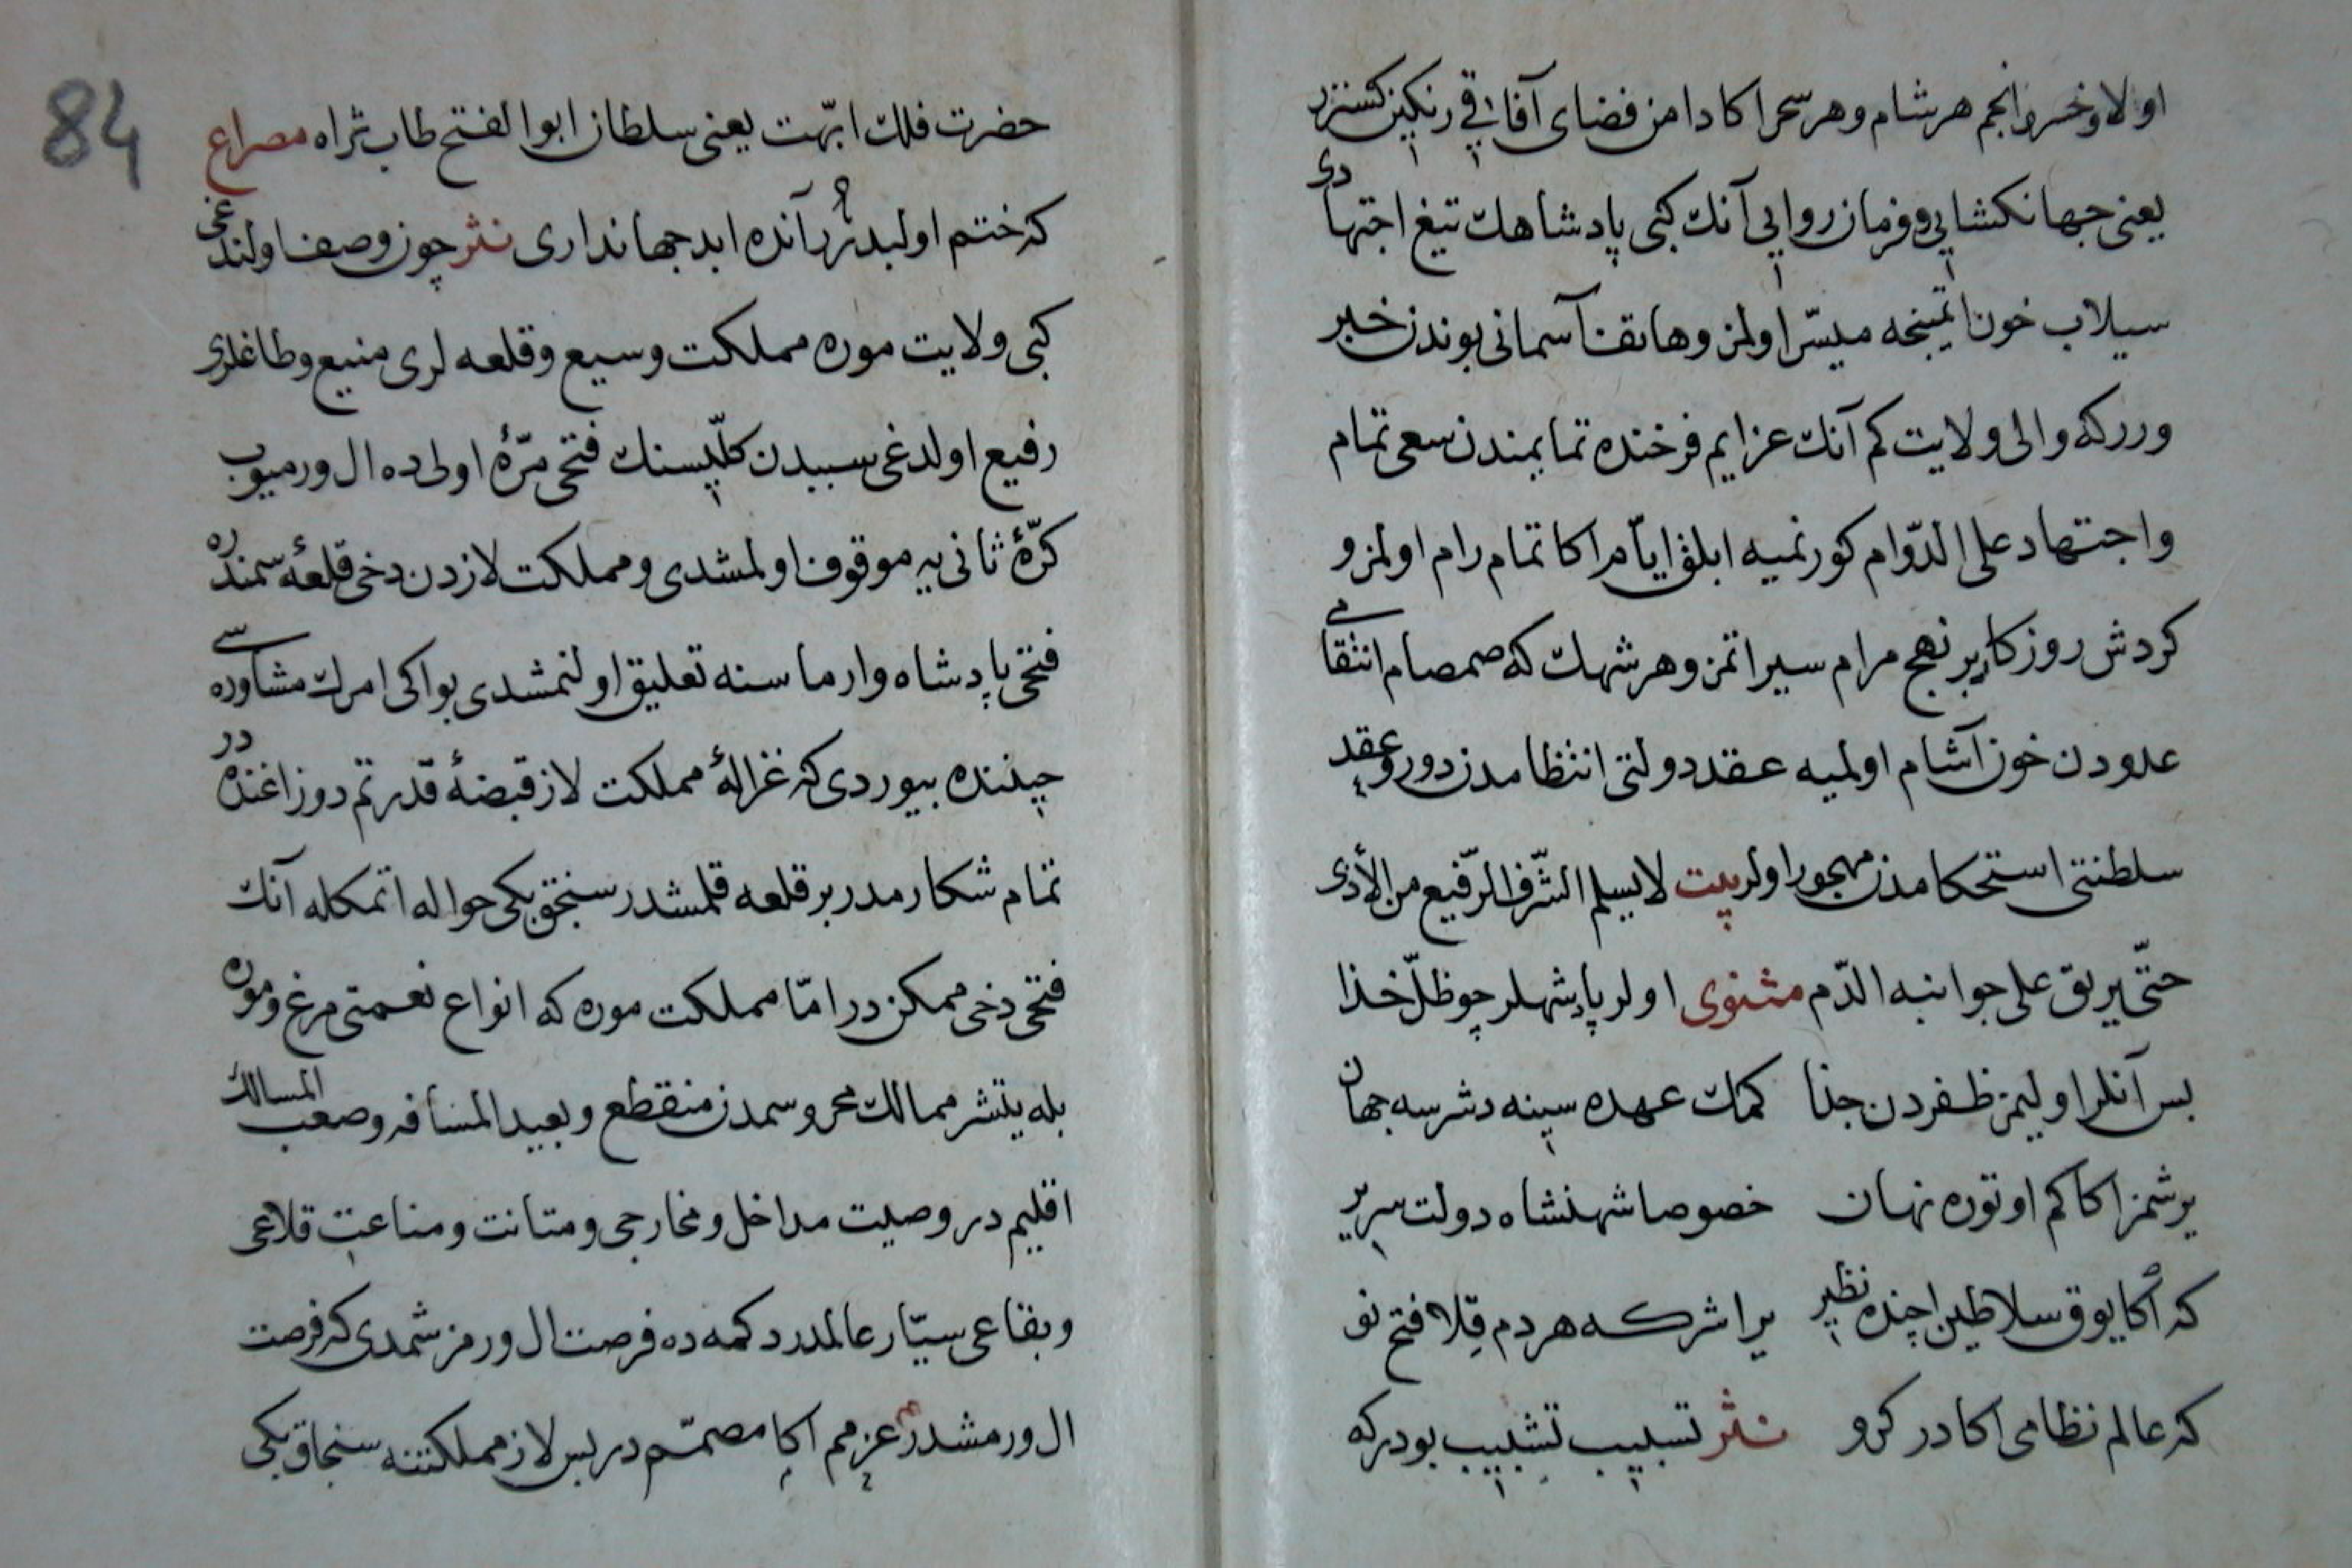 اولا و خسرو انجم هر شام و هر سحر اكا دامن فضای آفاقی رنكین كستزر
یعنی جهانكشایی و فرمان روایی آنك كبی پادشاهك تیغ اجتهادی
سیلاب خون ایتمینجه میسّر اولمز و هاتف آسمانی بوندن خبر
ورر كه والی ولایت كم آنك عزایم فرخنده تمایمندن سعی تمام
و اجتهاد علی الدّوام كورنمیه ابلق ایّام اكا تمام رام اولمز و
كردش روزكار بر نهج مرام سیر اتمز و هر شهك كه صمصام انتقامی
عدودن خون آشام اولمیه عقد دولتی انتظامدن دور و عقد
سلطنتی استحكامدن مهجور اولر بیت لا یسلم الشّرف الرّفیع من الأذی
حتّی یریق علی جوانبه الدّم مثنوی اولر پادشهلر چو ظلّ خذا
بس آنلر اولیمز ظفردن جذا كمك عهده سینه دشرسه جهان
یرشمز اكا كم اوتوره نهان خصوصا شهنشاه دولت سریر
كه اكا یوق سلاطین اچنده نظیر یراشر كه هر دم قلا فتح نو
كه عالم نظامی اكا در كرو نثر تسبیب تشبیب بودر كه
84
حضرت فلك ابّهت یعنی سلطان ابو الفتح طاب ثراه مصراع
كه ختم اولبدر آنده ابد جهانداری نثر چون وصف اولندغی
كبی ولایت موره مملكت وسیع و قلعه لری منیع و طاغلری
رفیع اولدغی سببدن كلّیسنك فتحی مرّۀ اولی ده ال ورمیوب
كرّۀ ثانی یه موقوف اولمشدی و مملكت لازدن دخی قلعۀ سمندره
فتحی پادشاه وارماسنه تعلیق اولنمشدی بو اكی امرك مشاوره سی
چینده بیوردی كه غزالۀ مملكت لاز قبضۀ قدرتم دوزاغنده در
تمام شكارمدر بر قلعه قلمشدر سنجق بكی حواله اتمكله آنك
فتحی دخی ممكن در امّا مملكت موره كه انواع نعمتی مرغ و موره
بله یتشر ممالك محروسمدن منقطع و بعید المسافه و صعب المسالك
اقلیم در و صیت مداخل و مخارجی و متانت و مناعت قلاعی
و بقاعی سیّار عالمدر دكمه ده فرصت ال ورمزشمدی كه فرصت
ال ورمشدر عزمم اكا مصمّم در بس لاز مملكتنه سنجاق بكی